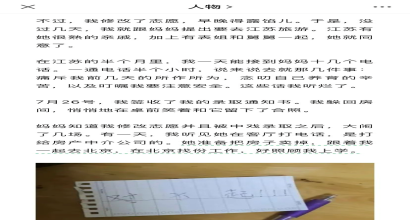 人物 >
不过，我修改了志愿，早晚得露馅儿。于是，没
过几天，我就跟妈妈提出要去江苏旅游。江苏有
她很熟的亲戚，加上有表姐和舅舅一起，她就同
意了。
在江苏的半个月里，我一天能接到妈妈十几个电
话。一通电话半个小时，说来说去就那几件事：
痛斥我前几天的所作所为，念叨自己养育的辛
苦，以及叮嘱我要注意安全。这些话我听烂了。
7月26号，我签收了我的录取通知书。我躲回房
间，悄悄地在桌前笑着和它留下了合照。
妈妈知道我修改志愿并且被中戏录取之后，大闹
了几场。有一天，我听见她在客厅打电话，是打
给房产中介公司的。她准备把房子卖掉，跟着我
一起去北京，在北京找份工作，好照顾我上学。